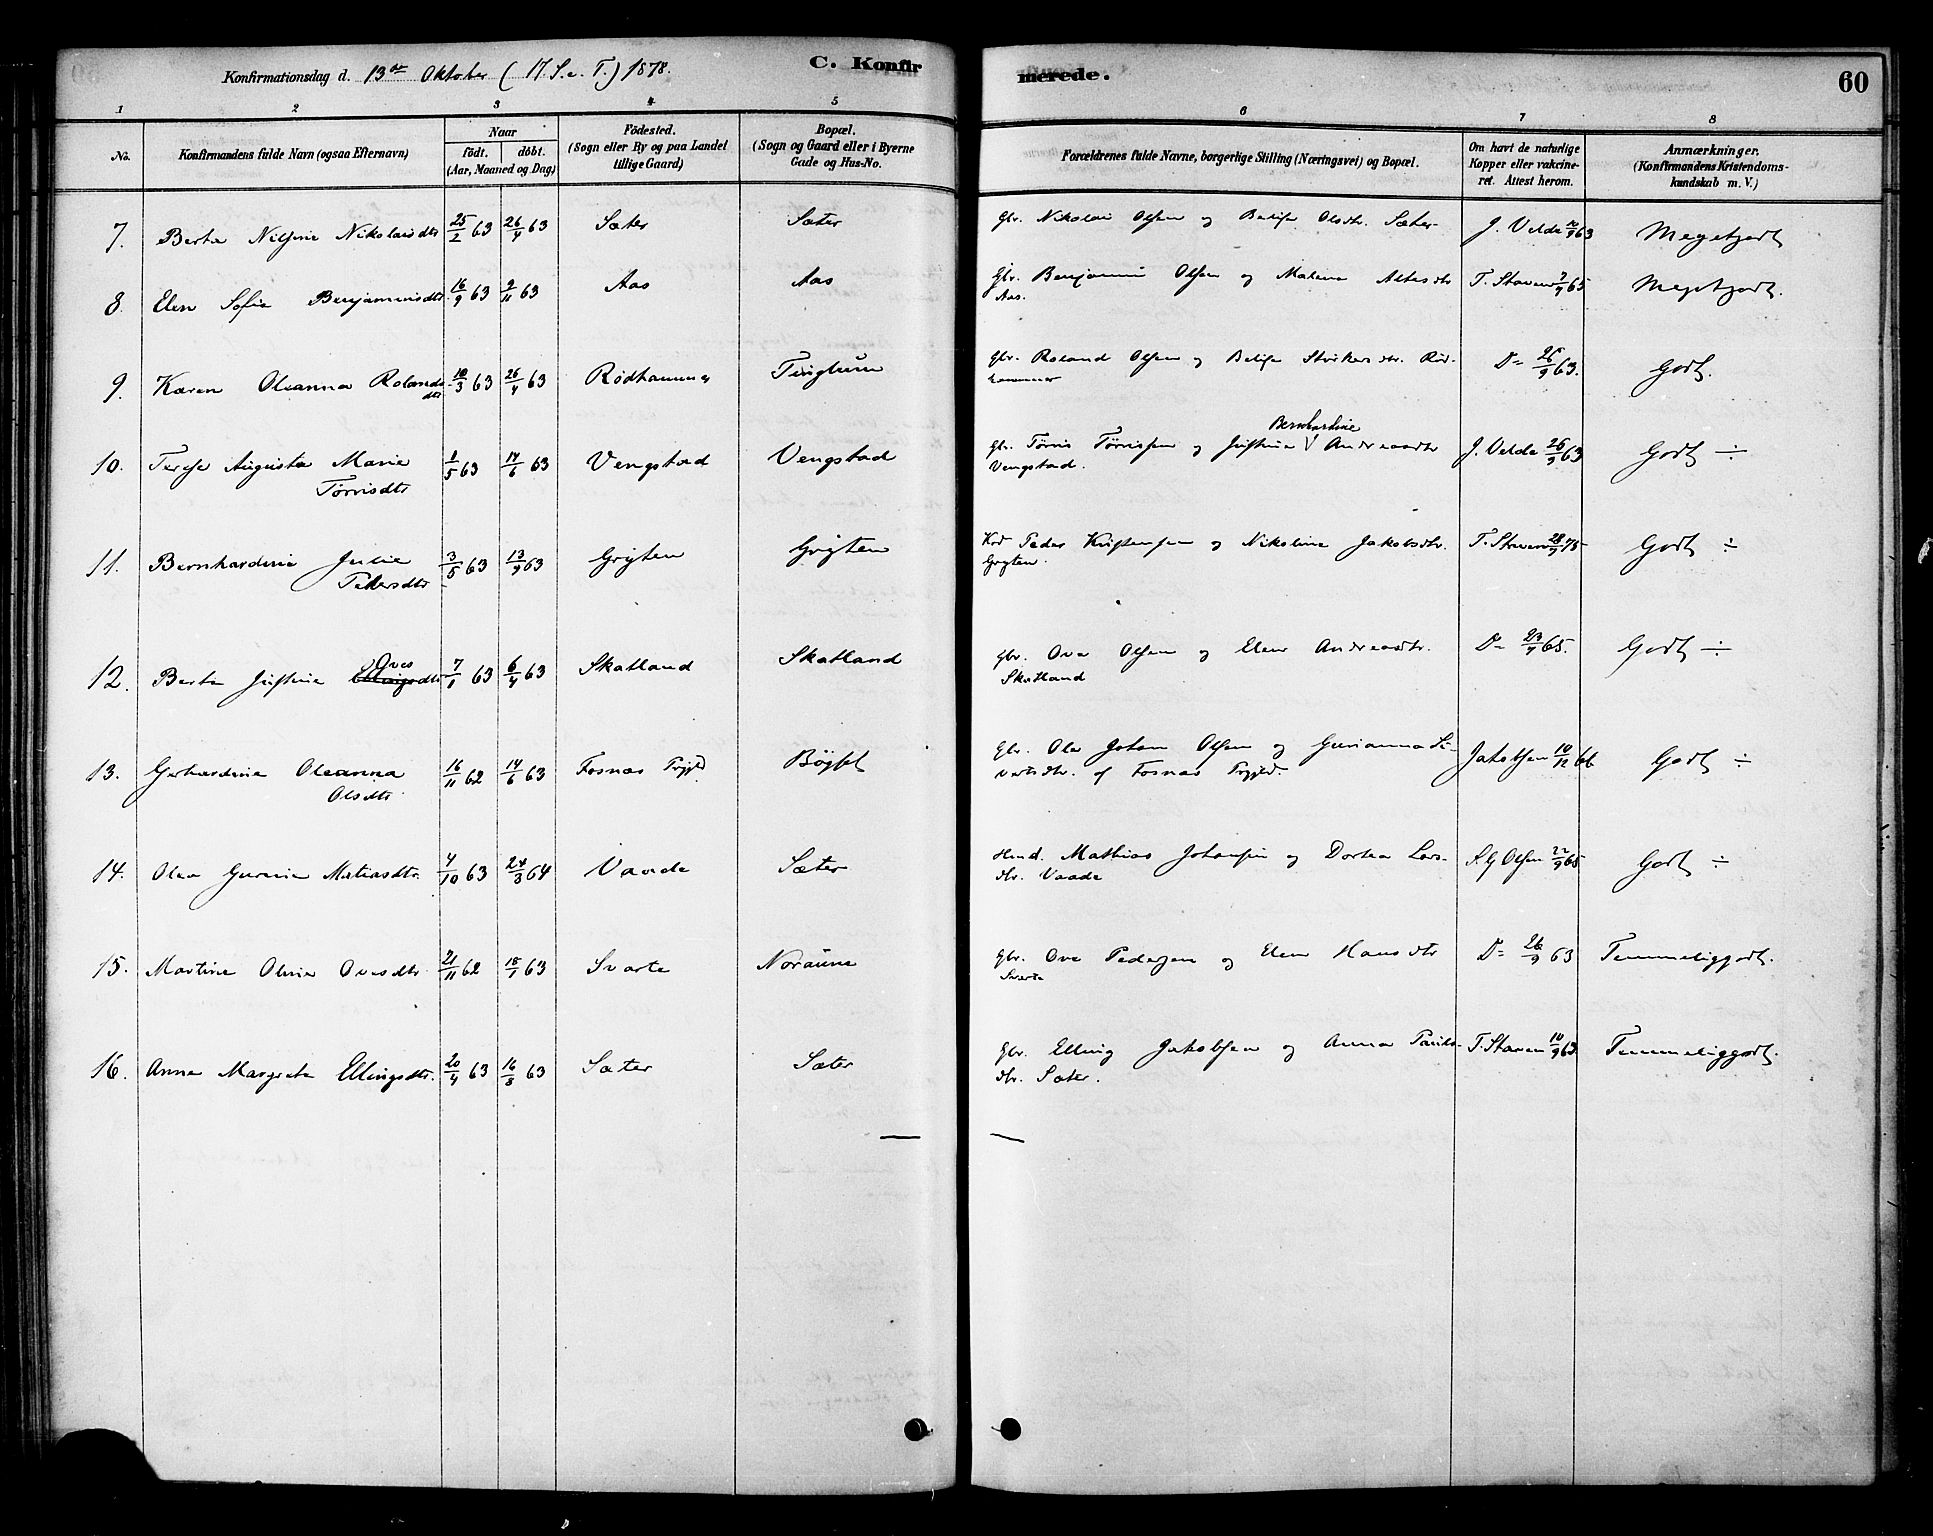 Konfirmationsdag d. 13de Oktober (17. S. e. T.) 1878.
C. Konfirmerede.
60
1 2 3 4 5 6 7 8
No.
Konfirmandens fulde Navn (ogsaa Efternavn)
Naar
født. døbt.
(Aar, Maaned og Dag)
Fødested.
(Sogn eller By og paa Landet
tillige Gaard)
Bopæl.
(Sogn og Gaard eller i Byerne
Gade og Hus-No.
Forældrenes fulde Navne, borgerlige Stilling (Næringsvei) og Bopæl.
Om havt de naturlige
Kopper eller vakcine-
ret. Attest herom.
Anmærkninger.
(Konfirmandens Kristendoms-
kundskab m. V.)
7. Berta Nilsine Nikolaisdtr 25/2 63 26/4 63 Sæter Sæter Gbr. Nikolai Olsen og Olsdtr. Sæter J. Velde 63 Megetgodt
8. Elen Sofie Benjaminsdtr 16/9 63 9/11 63 Aas Aas Gbr. Benjamin Olsen og Malena
Aas. T. Staven 65 Megetgodt.
9. Karen Oleanna Rolands
dtr 10/3 63 26/4 63 Rødhammer Gbr. Roland Olsen og Rød-
hammer Do 26/9 63. Godt.
10. Terese Augusta Marie
Tørrisdtr 1/5 63 14/6 63 Vengstad Vengstad Gbr. Tørris Tørrissen og Justine Bernhardine Andreasdtr
Vengstad. J. Velde 26/9 63 Godt ÷
11. Bernhardine Julie
Pedersdtr 3/5 63 13/9 63 Gryten Gryten Peder Kristensen og Nikoline Jakobsdtr.
Gryten. T. Staven 28/9 75 Godt ÷
12. Berta Justine Oves Ellingsdtr 7/1 63 6/4 63 Skatland Skatland Gbr. Ove Olsen og Elen Andreasdtr.
Skatland Do 65. Godt ÷
13. Gerhardine Oleanna
Olsdtr. 16/11 62 14/6 63 Fosnæs Prgjld. Gbr. Ole Johan Olsen og Gurianna Si-
vertsdtr. af Fosnæs Prgjld. Jakobsen 10/12 66 Godt ÷
14. Olea Gurine Matiasdtr. 4/10 63 24/3 64 Vaade Sæter Hmd. Mathias Johansen og Dortea Lars-
dtr. Vaade S. G Olsen 22/9 65 Godt ÷
15. Martine Oline Ovesdtr. 21/11 62 18/1 63 Svarte Noraune Gbr. Ove Pedersen og Elen Hansdtr
Svarte Do 26/9 63 Temmeliggodt.
16. Anne Margrete Ellingsdtr. 20/4 63 16/8 63 Sæter Sæter Gbr. Elling Jakobsen og Anna Pauls-
dtr. Sæter. T. Staven 10/9 63 Temmeliggodt.